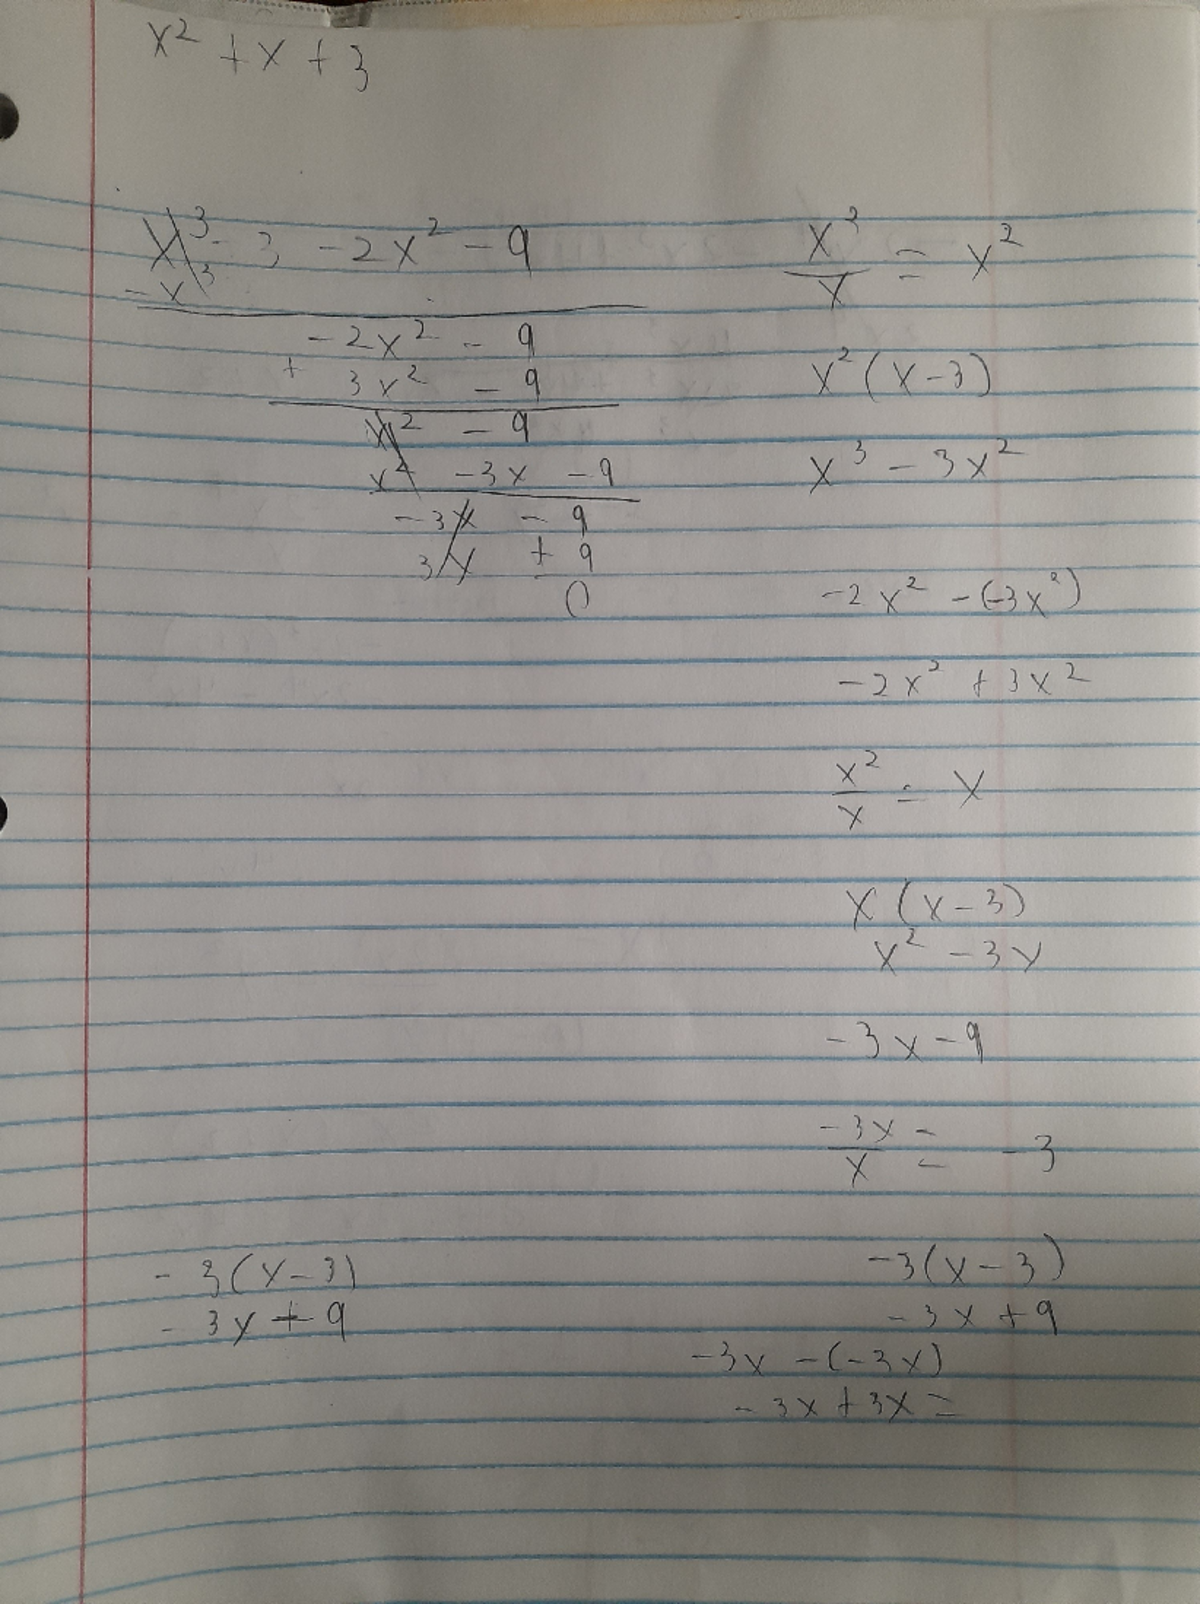 x² + x + 3
x³ - 3 - 2x² - 9
- x³
- 2x² - 9
+ 3x² - 9
x² - 9
x² - 3x - 9
- 3x - 9
3x + 9
0
x³/x = x²
x²(x - 3)
x³ - 3x²
-2x² - (-3x²)
-2x² + 3x²
x²/x = x
x(x - 3)
x² - 3x
-3x - 9
-3x/x = -3
-3(x - 3)
-3x + 9
-3x - (-3x)
-3x + 3x =
- 3(x - 3)
- 3x + 9